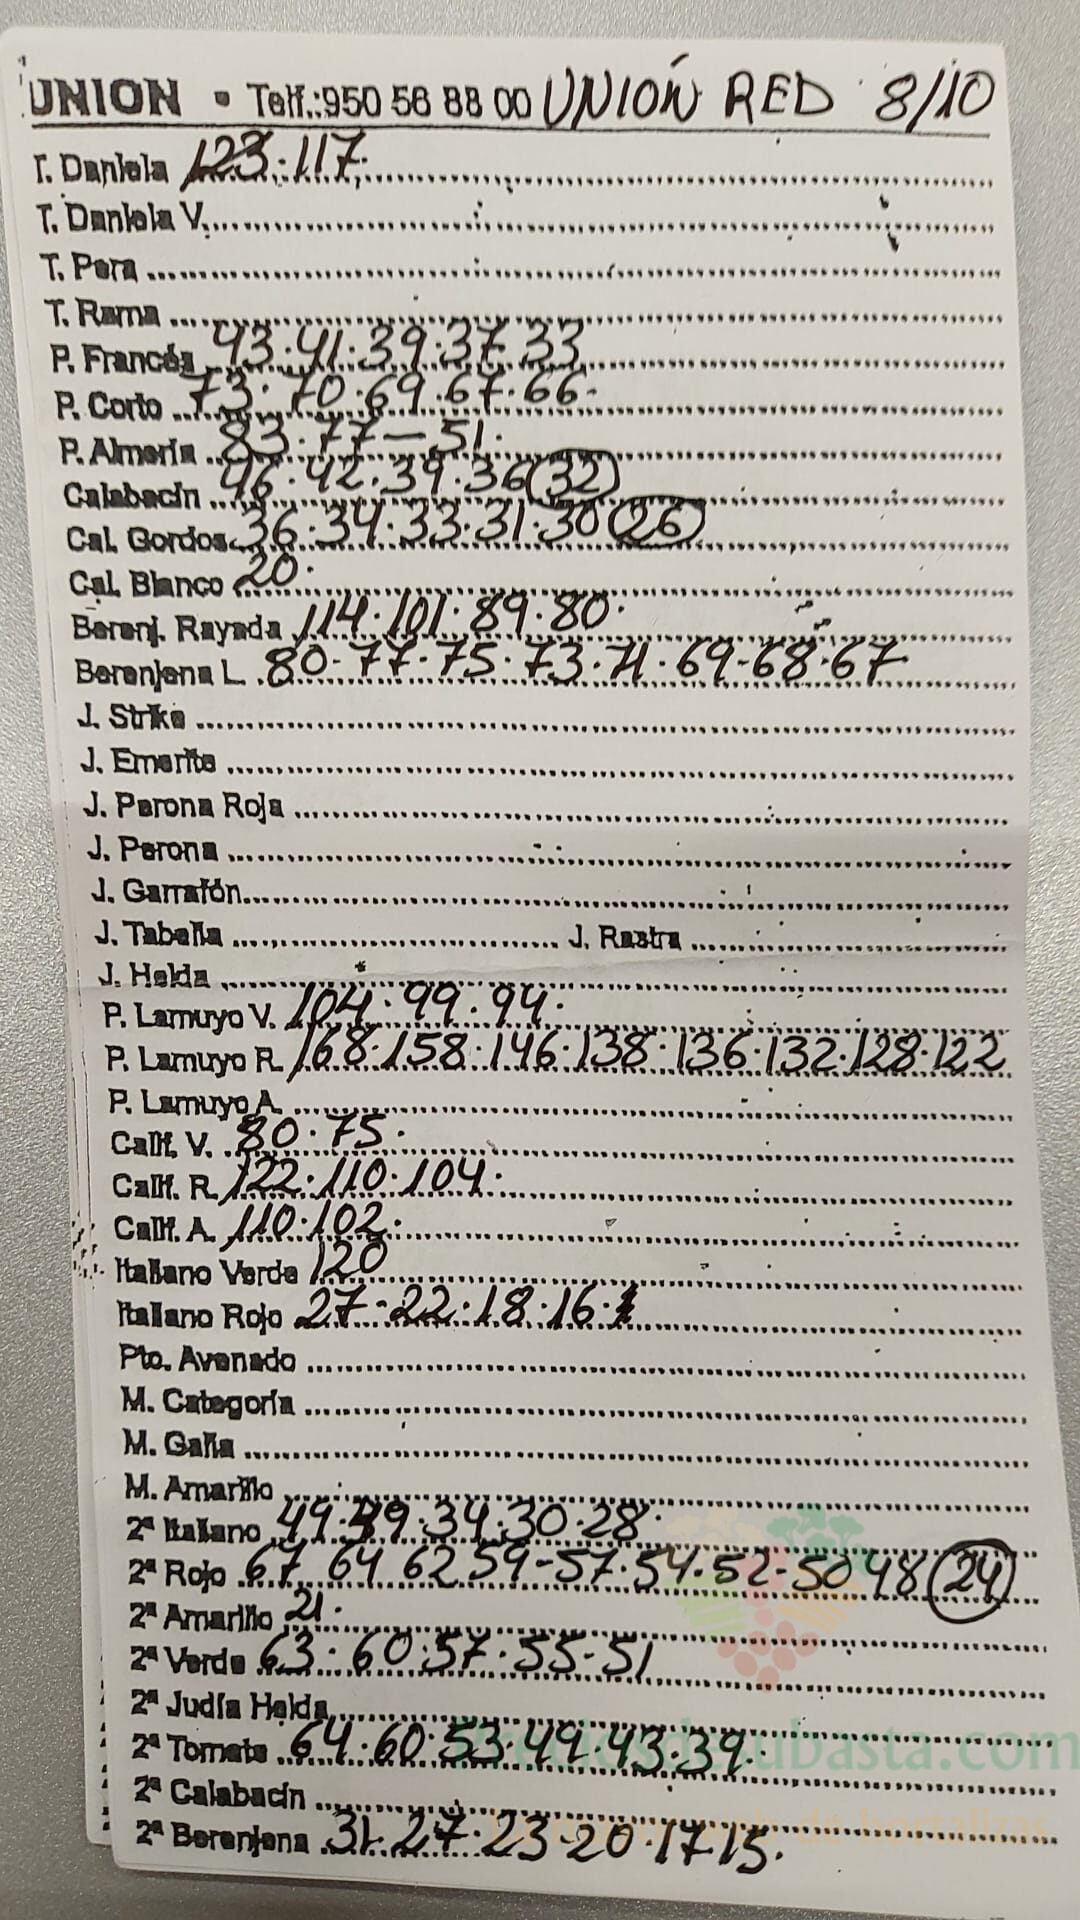 UNION • Telf.:950 56 88 00 UNIÓN RED 8/10
T. Daniela 123·117·
T. Daniela V.
T. Pera
T. Rama
P. Francés 43·41·39·37·33
P. Corto 73·70·69·67·66·
P. Almería 83·77—51·
Calabacín 46·42·39·36 (32)
Cal. Gordos 36·34·33·31·30 (26)
Cal. Blanco 20·
Berenj. Rayada 114·101·89·80·
Berenjena L. 80-77·75·73·71·69-68·67·
J. Strike
J. Emerite
J. Perona Roja
J. Perona
J. Garrafón
J. Tabella J. Rastra
J. Helda
P. Lamuyo V. 104·99·94·
P. Lamuyo R. 168·158·146·138·136·132·128·122
P. Lamuyo A.
Calif. V. 80·75·
Calif. R. 122·110·104·
Calif. A. 110·102·
Italiano Verde 120
Italiano Rojo 27-22·18·16·
Pto. Avenado
M. Categoría
M. Galia
M. Amarillo
2ª Italiano 49·39·34·30·28·
2ª Rojo 67 64 62 59-57·54·52-50 48 (24)
2ª Amarillo 21·
2ª Verde 63·60·57·55-51
2ª Judía Helda
2ª Tomate 64·60·53·49·43·39·
Preciosdesubasta.com
2ª Calabacín
2ª Berenjena 31·27·23-20·17·15·